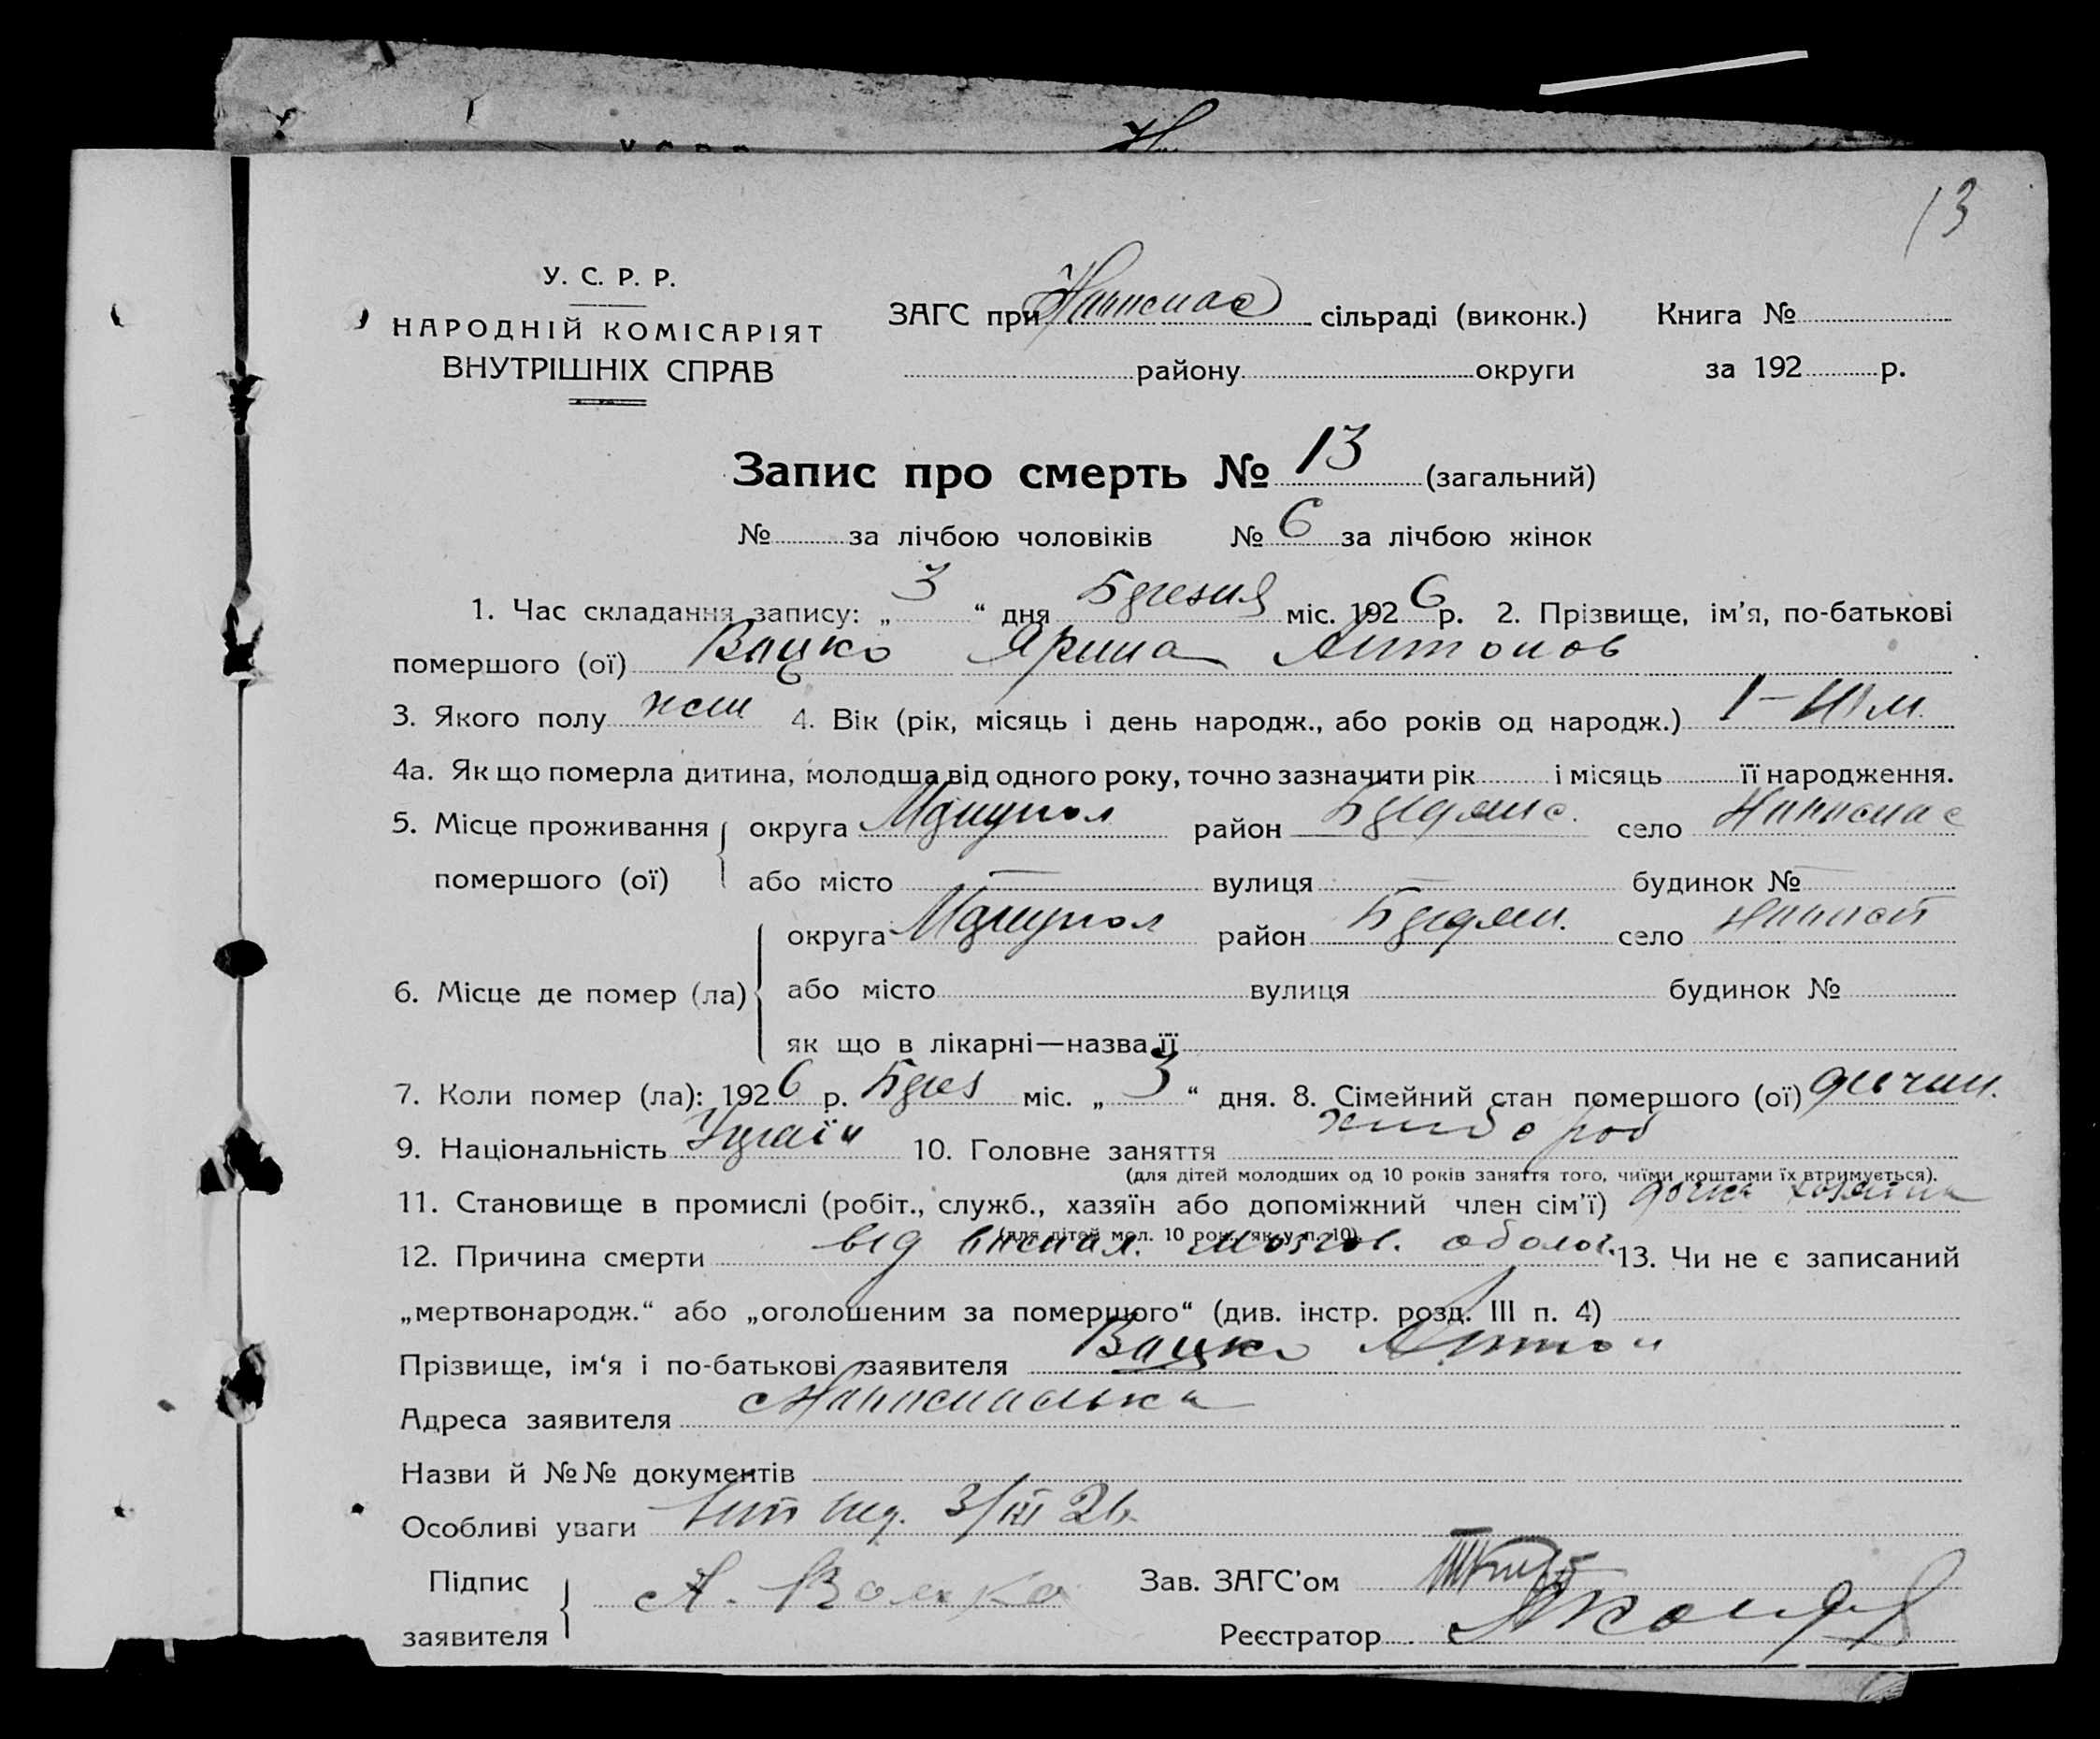 13
У. С. Р. Р.
НАРОДНІЙ КОМІСАРІЯТ
ВНУТРІШНІХ СПРАВ
ЗАГС при сільраді (виконк.) Книга №
району округи за 192 р.
Запис про смерть № 13 (загальний)
№ за лічбою чоловіків № 6 за лічбою жінок
1. Час складання запису: „ 3 “ дня Березня міс. 1926 р. 2. Прізвище, ім’я, по-батькові
помершого (ої) Вацко Ярина Антонов
3. Якого полу жен 4. Вік (рік, місяць і день народж., або років од народж.)
4а. Як що померла дитина, молодша від одного року, точно зазначити рік і місяць її народження.
5. Місце проживання округа Маріупол район село
помершого (ої) або місто — вулиця — будинок № —
округа Маріупол район село
6. Місце де помер (ла) або місто вулиця будинок №
як що в лікарні—назва її
7. Коли помер (ла): 1926 р. Берез міс. „ 3 “ дня. 8. Сімейний стан помершого (ої) дівчин.
9. Національність Україн 10. Головне заняття хлібороб
(для дітей молодших од 10 років заняття того, чиїми коштами їх втримується).
11. Становище в промислі (робіт., служб., хазяїн або допоміжний член сім’ї) дочка хозяїна
(для дітей мол. 10 рок., як у п. 10)
12. Причина смерти від воспал. мозгов. оболоч. 13. Чи не є записаний
„мертвонародж.“ або „оголошеним за помершого“ (див. інстр. розд. III п. 4)
Прізвище, ім‘я і по-батькові заявителя Вацко Антон
Адреса заявителя
Назви й №№ документів
Особливі уваги 3/III 26.
Підпис Зав. ЗАГС’ом
заявителя А. Вацко Реєстратор